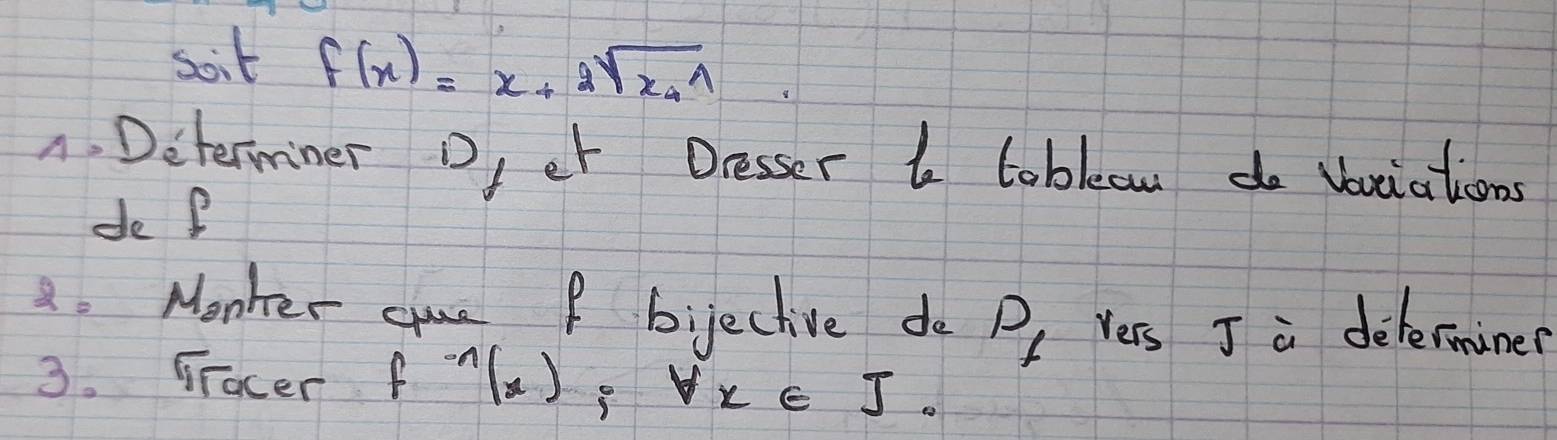 soit f(x) = x + 2√x+1 .
1. Déterminer Df et Dresser le tableau de variations
de f
2. Montrer que f bijective de Df vers J à déterminer
3. Tracer f⁻¹(x) ; ∀x ∈ J.